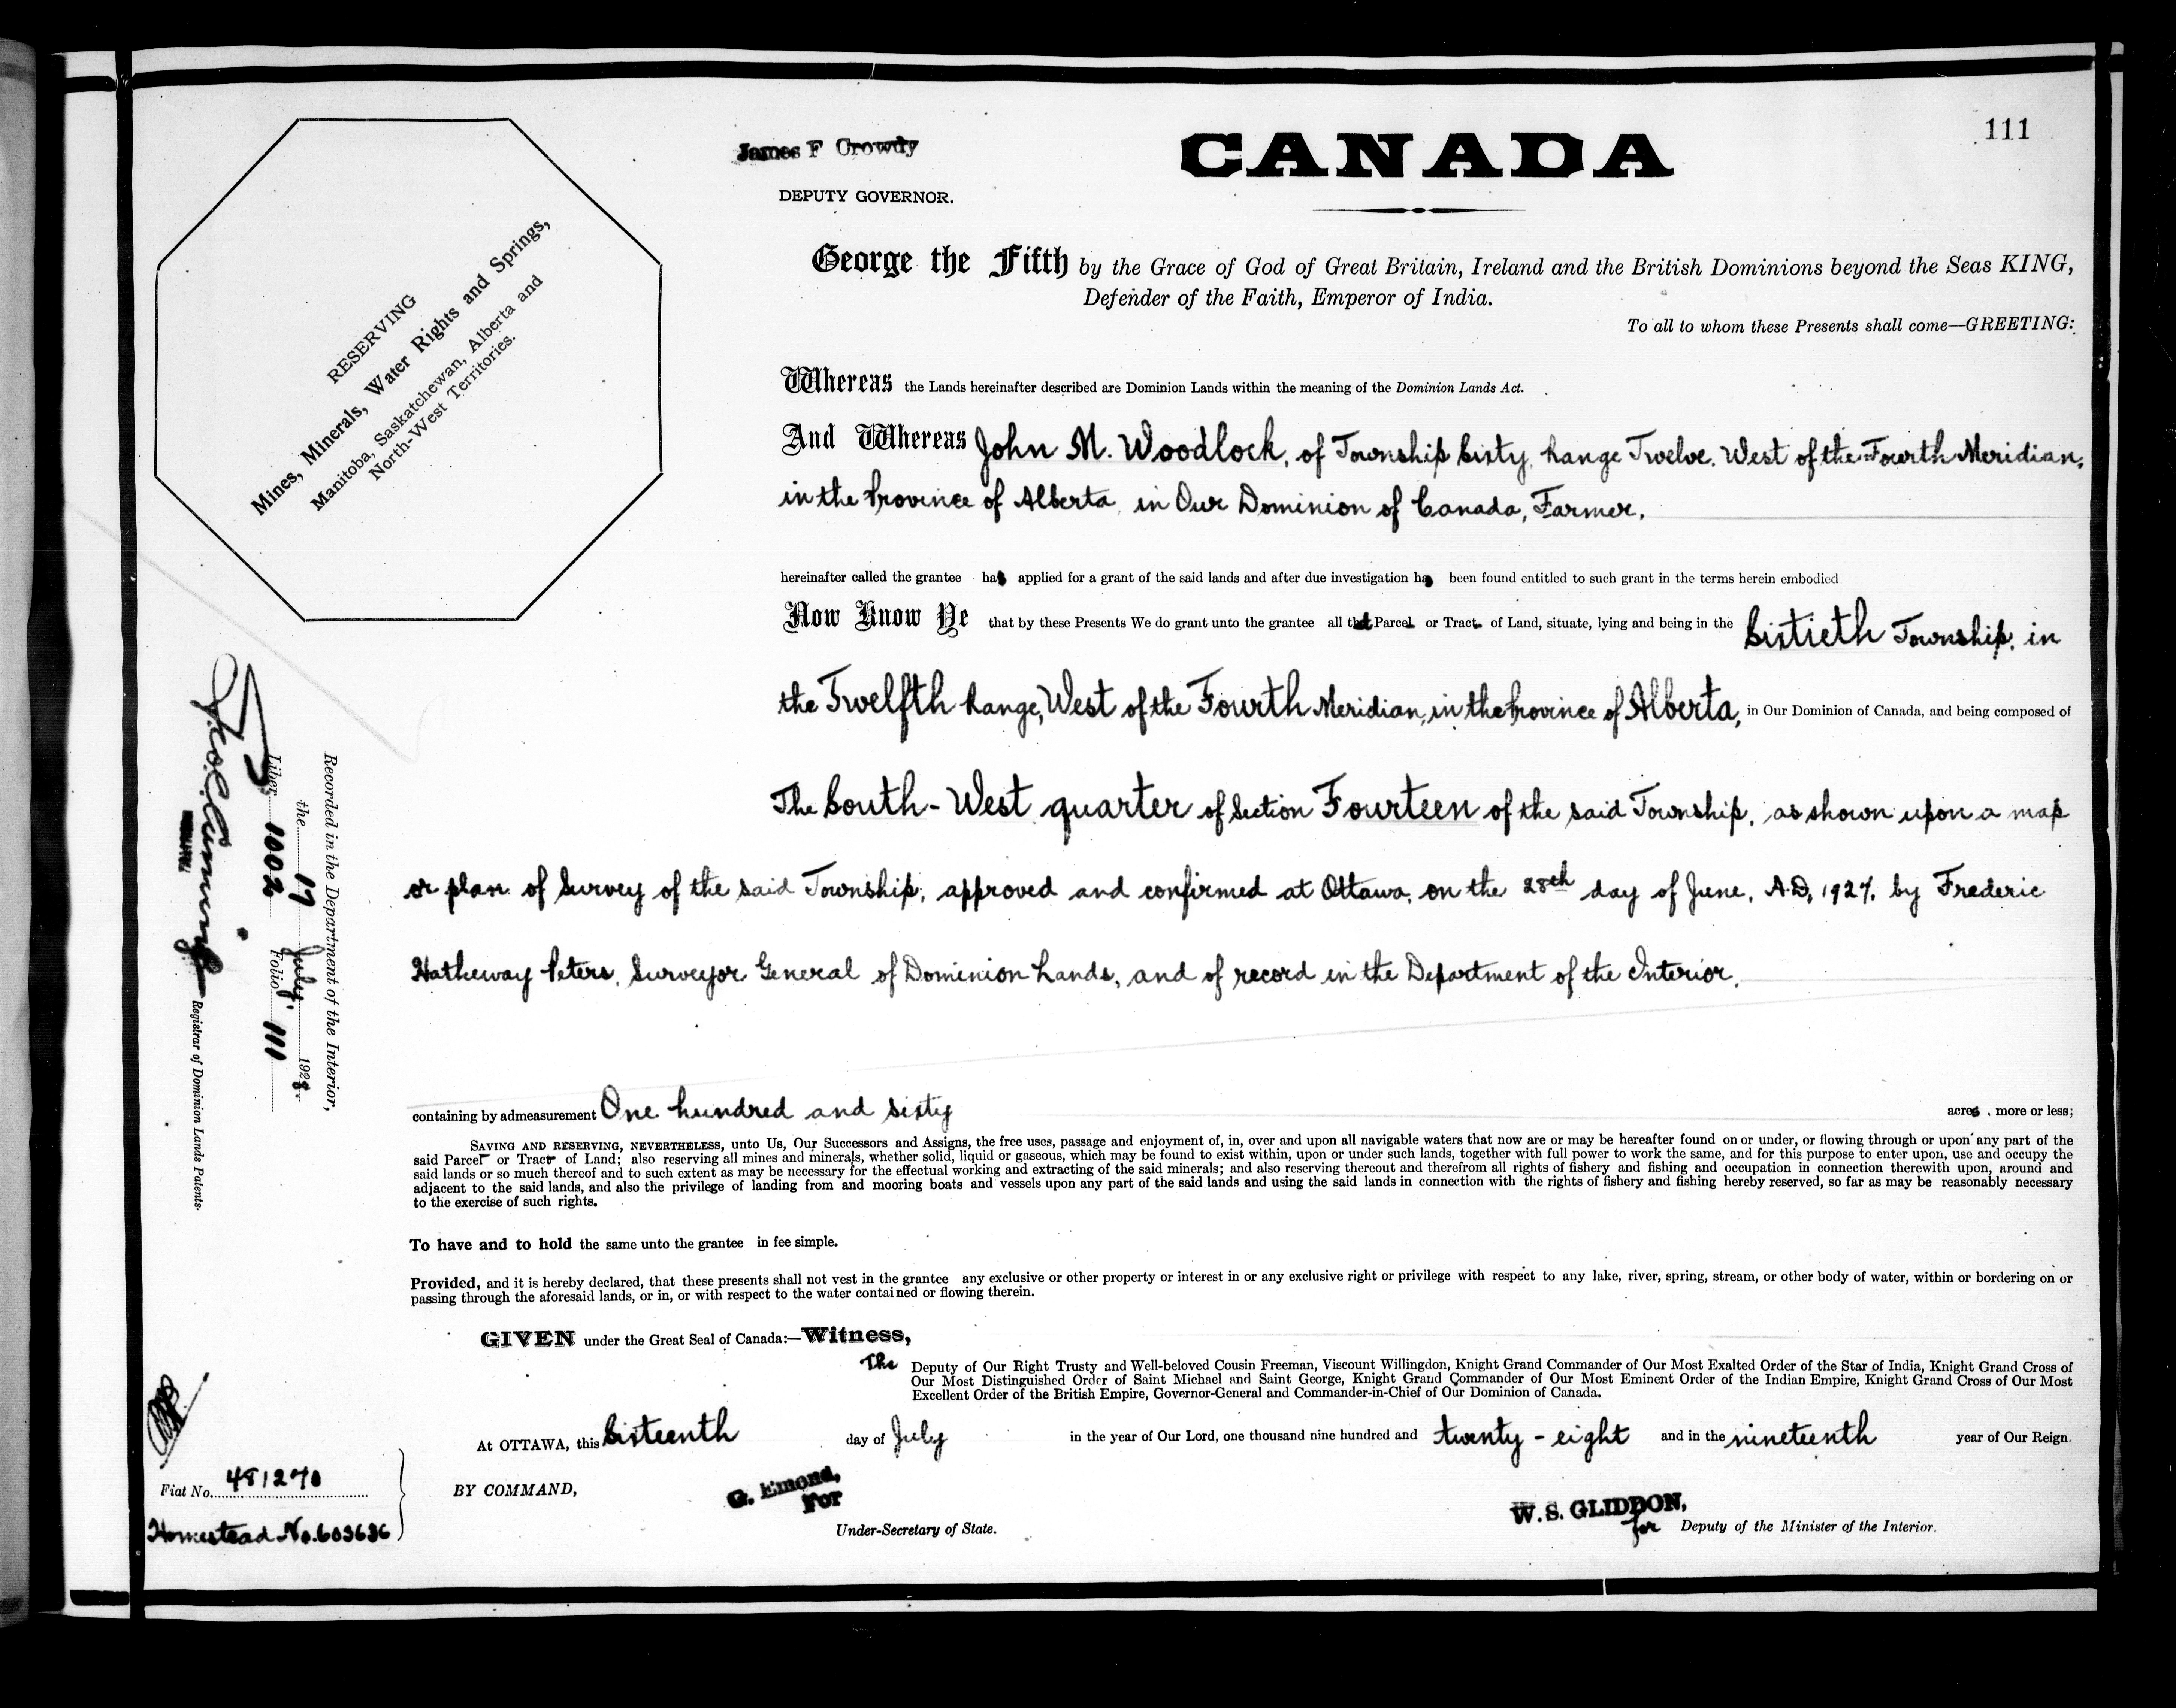 111
James F Crowdy
CANADA
DEPUTY GOVERNOR.
RESERVING
Mines, Minerals, Water Rights and Springs,
Manitoba, Saskatchewan, Alberta and
North-West Territories.
George the Fifth by the Grace of God of Great Britain, Ireland and the British Dominions beyond the Seas KING,
Defender of the Faith, Emperor of India.
To all to whom these Presents shall come—GREETING:
Whereas the Lands hereinafter described are Dominion Lands within the meaning of the Dominion Lands Act.
And Whereas John M. Woodlock, of Township Sixty, Range Twelve, West of the Fourth Meridian,
in the Province of Alberta, in Our Dominion of Canada, Farmer,
hereinafter called the grantee has applied for a grant of the said lands and after due investigation has been found entitled to such grant in the terms herein embodied
Now Know Ye that by these Presents We do grant unto the grantee all that Parcel or Tract of Land, situate, lying and being in the Sixtieth Township, in
the Twelfth Range, West of the Fourth Meridian, in the Province of Alberta, in Our Dominion of Canada, and being composed of
The South-West quarter of Section Fourteen of the said Township, as shown upon a map
or plan of Survey of the said Township, approved and confirmed at Ottawa, on the 28th day of June, A.D. 1927, by Frederic
Hatheway Peters, Surveyor General of Dominion Lands, and of record in the Department of the Interior.
Recorded in the Department of the Interior,
the 17 July 1928.
Liber 1002 Folio 111
Registrar of Dominion Lands Patents.
containing by admeasurement One hundred and sixty acres, more or less;
SAVING AND RESERVING, NEVERTHELESS, unto Us, Our Successors and Assigns, the free uses, passage and enjoyment of, in, over and upon all navigable waters that now are or may be hereafter found on or under, or flowing through or upon any part of the
said Parcel or Tract of Land; also reserving all mines and minerals, whether solid, liquid or gaseous, which may be found to exist within, upon or under such lands, together with full power to work the same, and for this purpose to enter upon, use and occupy the
said lands or so much thereof and to such extent as may be necessary for the effectual working and extracting of the said minerals; and also reserving thereout and therefrom all rights of fishery and fishing and occupation in connection therewith upon, around and
adjacent to the said lands, and also the privilege of landing from and mooring boats and vessels upon any part of the said lands and using the said lands in connection with the rights of fishery and fishing hereby reserved, so far as may be reasonably necessary
to the exercise of such rights.
To have and to hold the same unto the grantee in fee simple.
Provided, and it is hereby declared, that these presents shall not vest in the grantee any exclusive or other property or interest in or any exclusive right or privilege with respect to any lake, river, spring, stream, or other body of water, within or bordering on or
passing through the aforesaid lands, or in, or with respect to the water contained or flowing therein.
GIVEN under the Great Seal of Canada:—Witness,
The Deputy of Our Right Trusty and Well-beloved Cousin Freeman, Viscount Willingdon, Knight Grand Commander of Our Most Exalted Order of the Star of India, Knight Grand Cross of
Our Most Distinguished Order of Saint Michael and Saint George, Knight Grand Commander of Our Most Eminent Order of the Indian Empire, Knight Grand Cross of Our Most
Excellent Order of the British Empire, Governor-General and Commander-in-Chief of Our Dominion of Canada.
At OTTAWA, this Sixteenth day of July in the year of Our Lord, one thousand nine hundred and twenty-eight and in the nineteenth year of Our Reign.
Fiat No. 481270
Homestead No. 603636
BY COMMAND,
G. Emond,
For
Under-Secretary of State.
W. S. GLIDDON,
for Deputy of the Minister of the Interior.